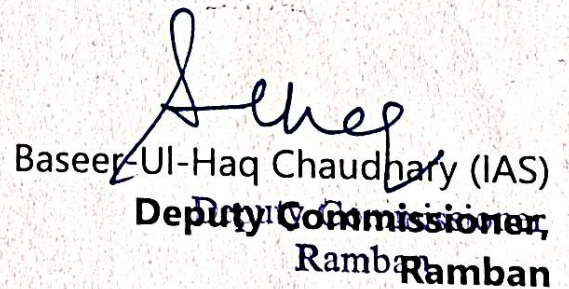 Baseer-Ul-Haq Chaudhary (IAS)
Deputy Commissioner,
Deputy Commissioner,
Ramban
Ramban